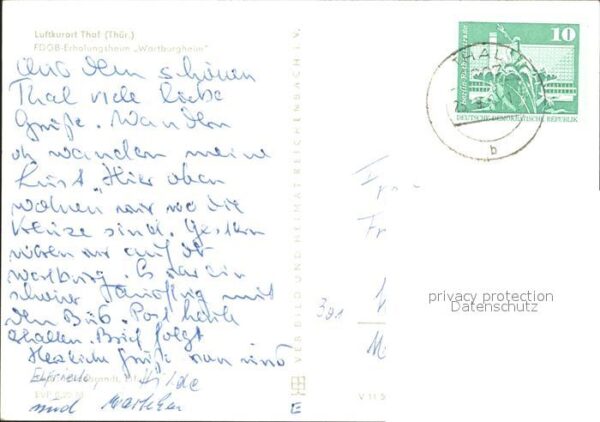 Luftkurort Thal (Thür.)
FDGB-Erholungsheim „Wartburgheim"
Aus dem schönen
Thal viele liebe
Grüße. Wandern
oh wandern meine
Lust „Hier oben
wohnen wir wo die
Kreuze sind. Gestern
waren wir auf der
Wartburg. Es war ein
schöner mit
dem Bus. Post heute
erhalten. Brief folgt
Herzliche Grüße nun und
Elfriede, Hilde
und
VEB BILD UND HEIMAT REICHENBACH I. V.
V 11 5
10
DEUTSCHE DEMOKRATISCHE REPUBLIK
THAL
b
Fr
381
M
privacy protection
Datenschutz